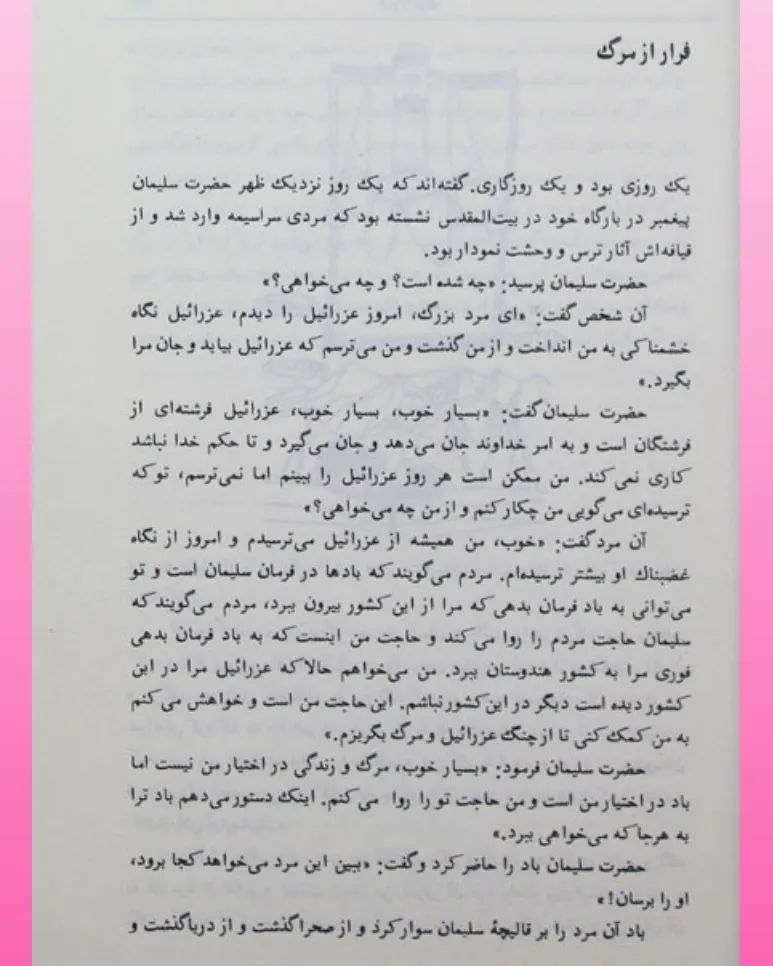 فرار از مرگ
یک روزی بود و یک روزگاری. گفته‌اند که یک روز نزدیک ظهر حضرت سلیمان
پیغمبر در بارگاه خود در بیت‌المقدس نشسته بود که مردی سراسیمه وارد شد و از
قیافه‌اش آثار ترس و وحشت نمودار بود.
حضرت سلیمان پرسید: «چه شده است؟ و چه می‌خواهی؟»
آن شخص گفت: «ای مرد بزرگ، امروز عزرائیل را دیدم، عزرائیل نگاه
خشمناکی به من انداخت و از من گذشت و من می‌ترسم که عزرائیل بیاید و جان مرا
بگیرد.»
حضرت سلیمان گفت: «بسیار خوب، بسیار خوب، عزرائیل فرشته‌ای از
فرشتگان است و به امر خداوند جان می‌دهد و جان می‌گیرد و تا حکم خدا نباشد
کاری نمی‌کند. من ممکن است هر روز عزرائیل را ببینم اما نمی‌ترسم، تو که
ترسیده‌ای می‌گویی من چکار کنم و از من چه می‌خواهی؟»
آن مرد گفت: «خوب، من همیشه از عزرائیل می‌ترسیدم و امروز از نگاه
غضبناک او بیشتر ترسیده‌ام. مردم می‌گویند که بادها در فرمان سلیمان است و تو
می‌توانی به باد فرمان بدهی که مرا از این کشور بیرون ببرد، مردم می‌گویند که
سلیمان حاجت مردم را روا می‌کند و حاجت من اینست که به باد فرمان بدهی
فوری مرا به کشور هندوستان ببرد. من می‌خواهم حالا که عزرائیل مرا در این
کشور دیده است دیگر در این کشور نباشم. این حاجت من است و خواهش می‌کنم
به من کمک کنی تا از چنگ عزرائیل و مرگ بگریزم.»
حضرت سلیمان فرمود: «بسیار خوب، مرگ و زندگی در اختیار من نیست اما
باد در اختیار من است و من حاجت تو را روا می‌کنم. اینک دستور می‌دهم باد ترا
به هرجا که می‌خواهی ببرد.»
حضرت سلیمان باد را حاضر کرد و گفت: «ببین این مرد می‌خواهد کجا برود،
او را برسان!»
باد آن مرد را بر قالیچهٔ سلیمان سوار کرد و از صحرا گذشت و از دریا گذشت و